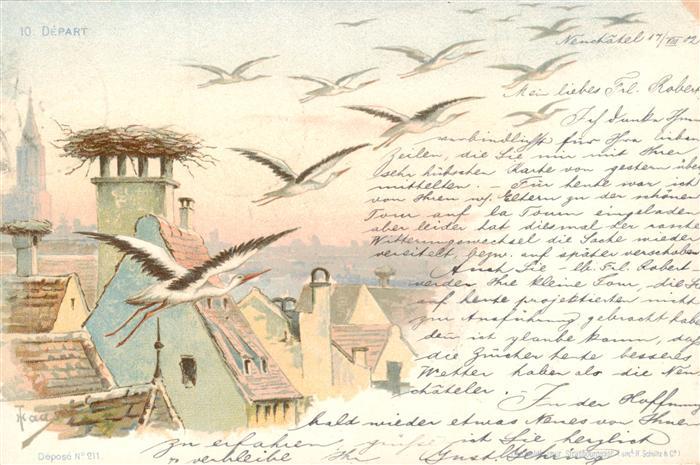 10. DÉPART
Neuchâtel 17/VIII 02
Mein liebes Frl. Robert
Ich danke Ihnen
verbindlichst für Ihre lieben
Zeilen, die Sie mir mit Ihrer
sehr hübschen Karte von gestern über
mittelten. – Für heute war ich
von Ihren Eltern zu der schönen
Tour auf la Tourn eingeladen
aber leider hat diesmal der rasche
Witterungswechsel die Sache wieder
vereitelt, bezw. auf später verschoben
Auch Sie – lb. Frl. Robert
werden Ihre kleine Tour, die Sie
auf heute projektierten nicht
zur Ausführung gebracht haben
denn ich glaube kaum, daß
die Zürcher heute besseres
Wetter haben als die Neu-
châteler.
In der Hoffnung
bald wieder etwas Neues von Ihnen
zu erfahren, grüße ich Sie herzlich
& verbleibe Ihr Gust.
Déposé No 211.